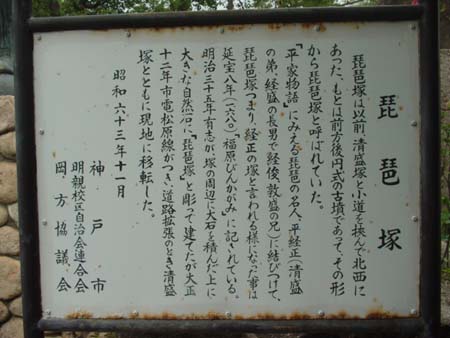 琵琶塚
琵琶塚は以前、清盛塚と小道を挟んで北西に
あった、もとは前方後円式の古墳であって、その形
から琵琶塚と呼ばれていた。
「平家物語」にみえる琵琶の名人、平経正(清盛
の弟、経盛の長男で経俊、敦盛の兄)に結びつけて、
琵琶塚つまり、経正の塚と言われる様になった事は
延宝八年(一六八〇)「福原びんかがみ」に記されている。
明治三十五年有志が塚の周辺に大石を積んだ上に
大きな自然石に「琵琶塚」と彫って建てたが大正
十二年市電松原線がつき、道路拡張のとき、清盛
塚とともに現地に移転した。
昭和六十三年十一月
神戸市
明親校区自治会連合会
岡方協議会